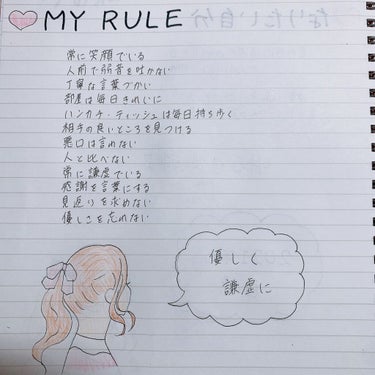 MY RULE
常に笑顔でいる
人前で弱音を吐かない
丁寧な言葉づかい
部屋は毎日きれいに
ハンカチ・ティッシュは毎日持ち歩く
相手の良いところを見つける
悪口は言わない
人と比べない
常に謙虚でいる
感謝を言葉にする
見返りを求めない
優しさを忘れない
優しく
謙虚に